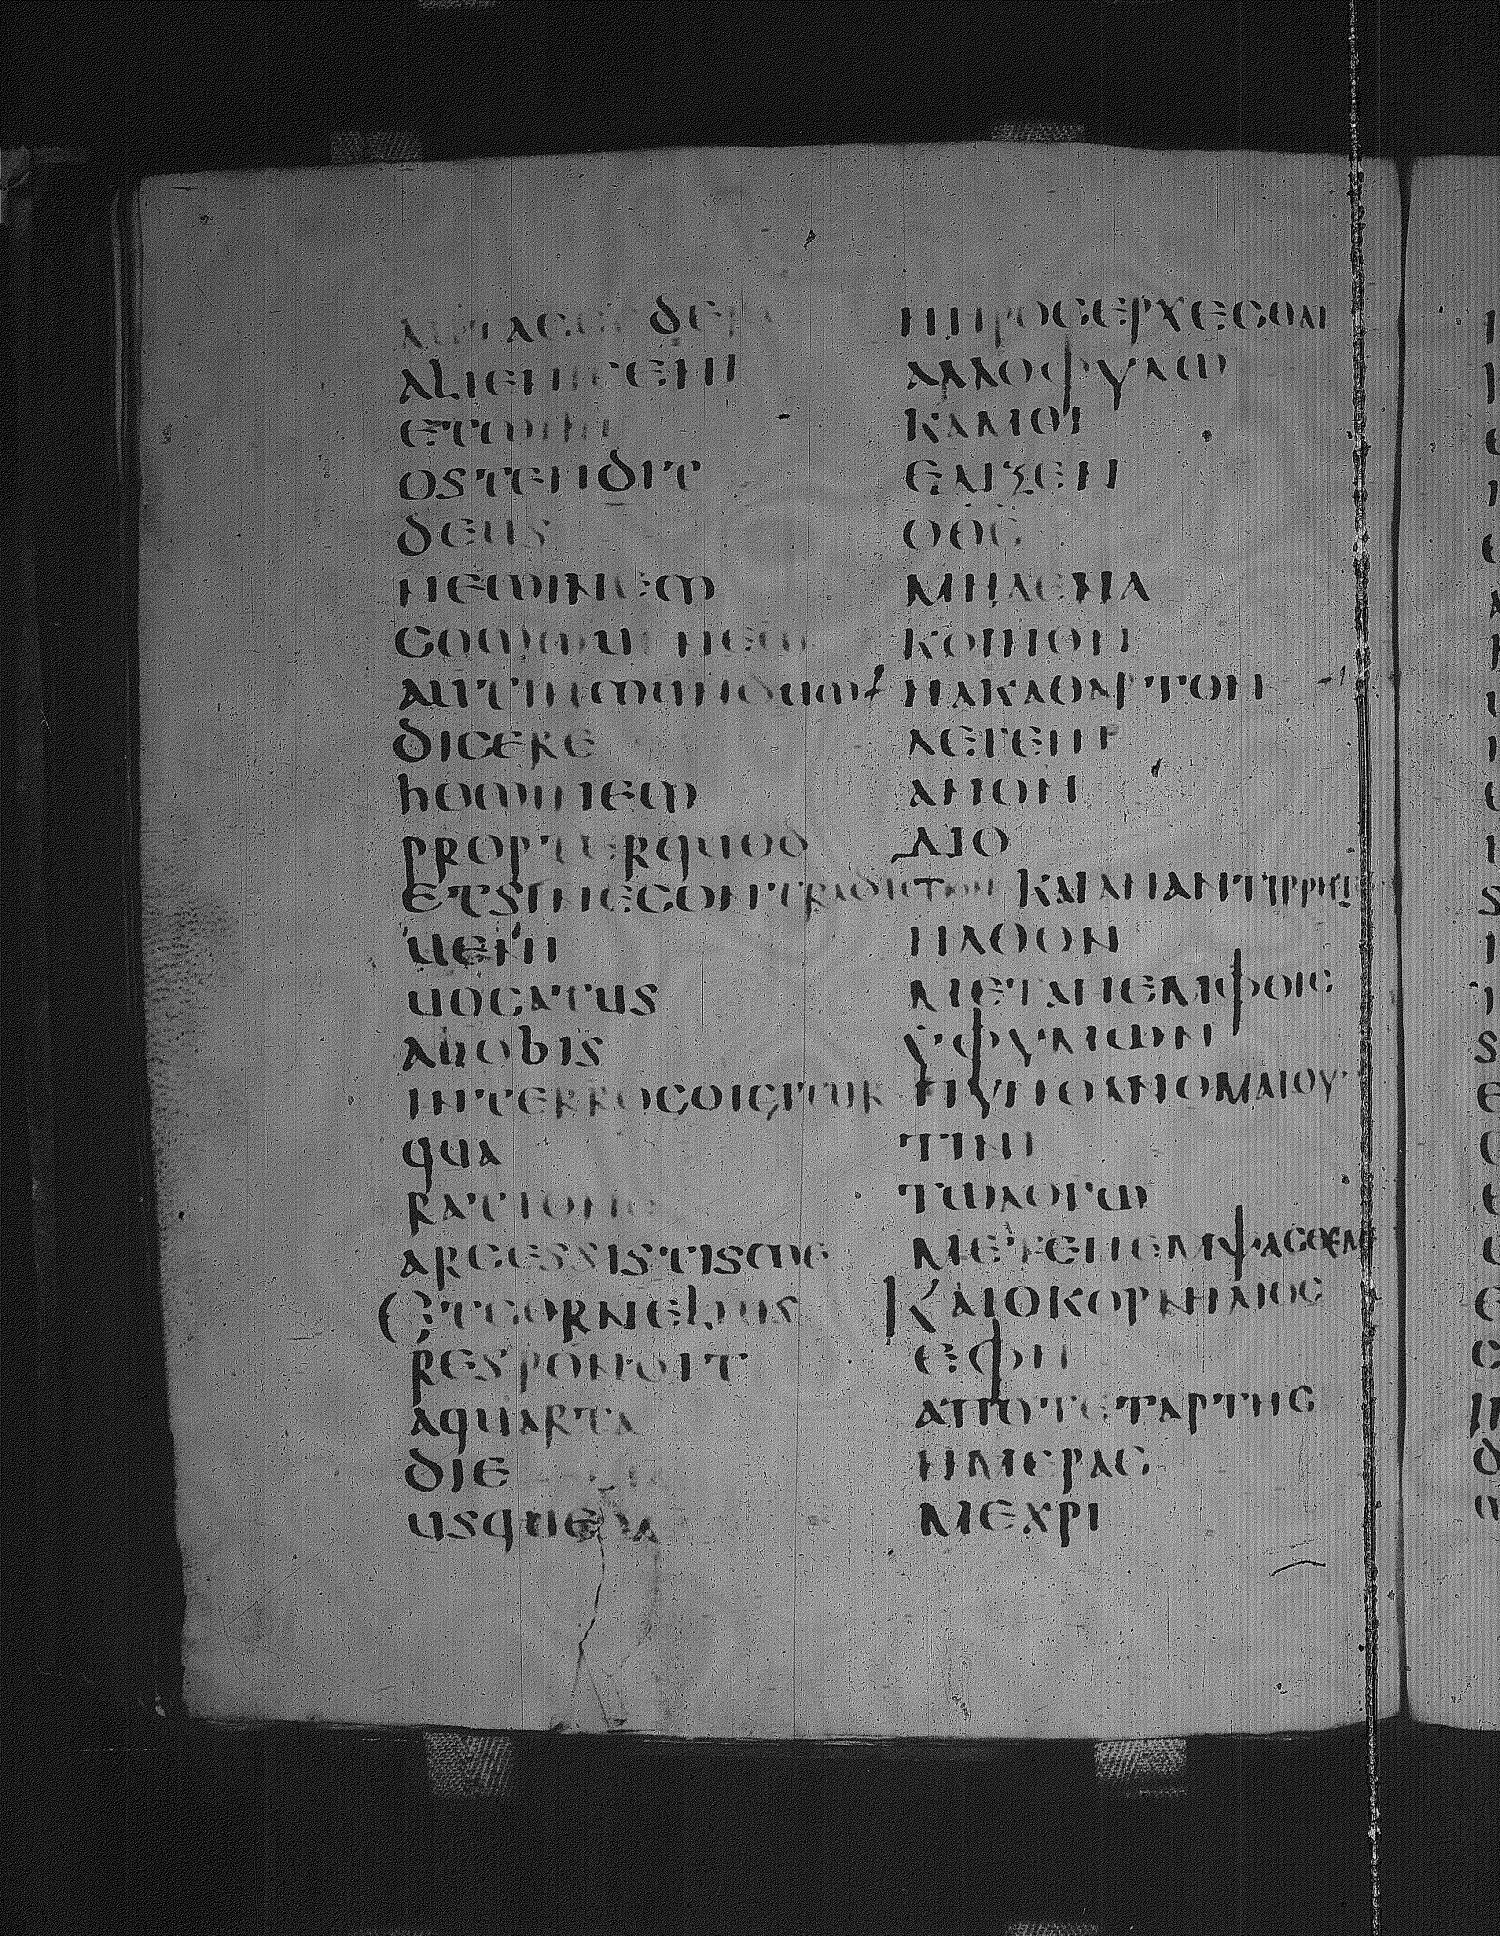 autaccedere
alienigeni
etmihi
ostendit
deus
neminem
communem
autinmundum
dicere
hominem
propterquod
etsinecontradictione
ueni
uocatus
auobis
interrogoigitur
qua
ratione
arcessistisme
Etcornelius
respondit
aquarta
die
usque
ΗΠΡΟCΕΡΧΕCΘΑΙ
ΑΛΛΟΦΥΛΩ
ΚΑΜΟΙ
ΕΔΙΞΕΝ
ΟΘC
ΜΗΔΕΝΑ
ΚΟΙΝΟΝ
ΗΑΚΑΘΑΡΤΟΝ
ΛΕΓΕΙΝ
ΑΝΟΝ
ΔΙΟ
ΚΑΙΑΝΑΝΤΙΡΡΗΤ
ΗΛΘΟΝ
ΜΕΤΑΠΕΜΦΘΕΙC
ΥΦΥΜΩΝ
ΠΥΝΘΑΝΟΜΑΙΟΥ
ΤΙΝΙ
ΤΩΛΟΓΩ
ΜΕΤΕΠΕΜΨΑCΘΕΜΕ
ΚΑΙΟΚΟΡΝΗΛΙΟC
ΕΦΗ
ΑΠΟΤΕΤΑΡΤΗC
ΗΜΕΡΑC
ΜΕΧΡΙ